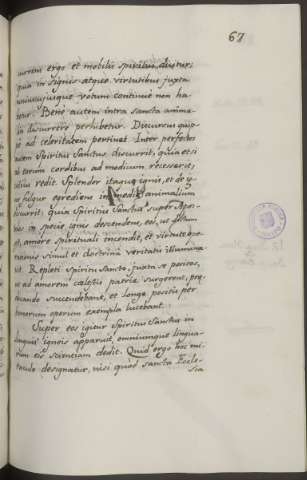 67
morem ergo et mobilis spiritus dicitur,
quia in signis atque virtutibus juxta
uniuscujusque votum continuè non ha-
tur. Bene autem intra sancta anima-
ia discurrere perhibetur. Discursus quip-
ad celeritatem pertinet. Inter perfectos
autem Spiritus Sanctus discurrit, quia etsi
eorum cordibus ad modicum recesserit,
redit. Splendor itaque ignis, et de ig-
fulgur egrediens in medio animalium
discurrit: quia Spiritus Sanctus super Apos-
in specie ignis descendens, eos, ut
amore spirituali incendit, et virtute ope-
simul et doctrina veritatis illumina-
vit. Repleti Spiritu Sancto, juxta se positos,
ut ad amorem cælestis patriæ surgerent, præ-
dicando succendebant, et longè positis per
bonorum operum exempla lucebant.
Super eos igitur Spiritus Sanctus in
linguis igneis apparuit, omniumque lingua-
rum eis scientiam dedit. Quid ergo hoc mi-
raculo designatur, nisi quòd sancta Eccle-
sia